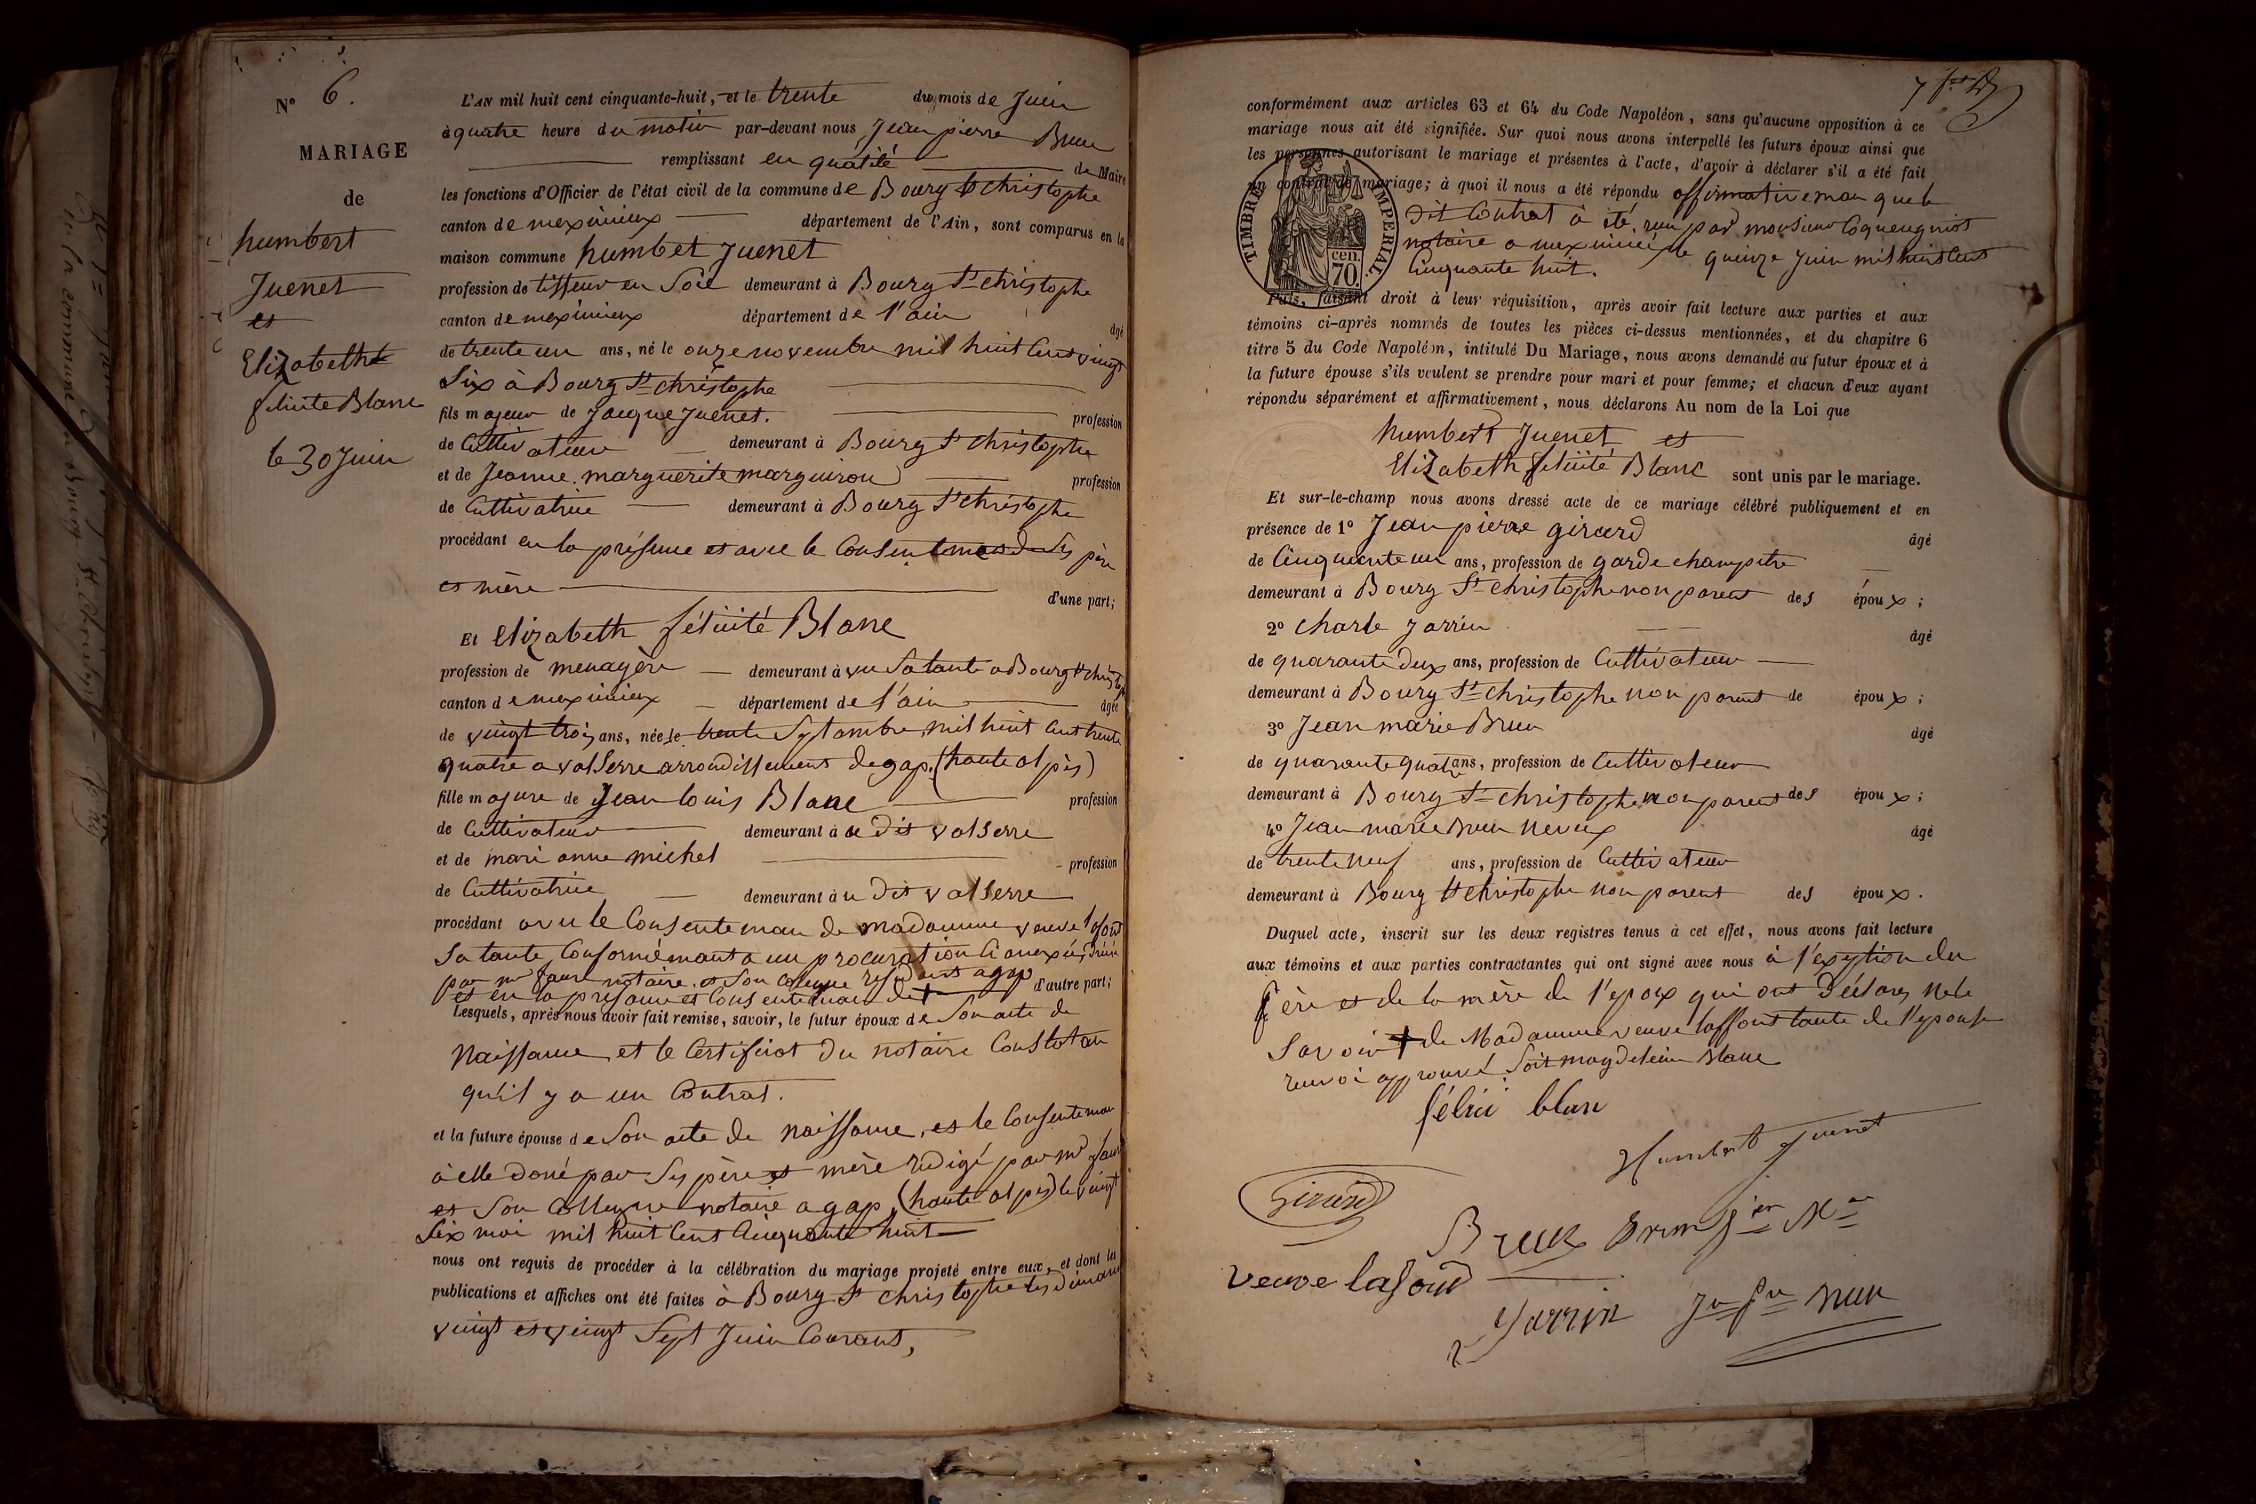 N° 6.
MARIAGE
de
humbert
Juenet
et
Elizabethe
félicité Blanc
le 30 Juin
L'AN mil huit cent cinquante-huit, et le trente du mois de Juin
à quatre heure du matin par-devant nous Jean pierre Brun
remplissant en qualité de Maire
les fonctions d'Officier de l'état civil de la commune de Bourg St christophe
canton de meximieux département de l'Ain, sont comparus en la
maison commune humbet Juenet
profession de tisseur en Soie demeurant à Bourg St christophe
canton de meximieux département de l'ain âgé
de trente un ans, né le onze novembre mil huit cent vingt
Six à Bourg St christophe
fils majeur de Jacque Juenet. profession
de Cultivateur demeurant à Bourg St christophe
et de Jeanne marguerite marguiron profession
de Cultivatrice demeurant à Bourg St christophe
procédant en la présence et avec le Consentement de Ses père
et mère d'une part;
Et Elizabeth félicité Blanc
profession de menagère demeurant à Sa tante a Bourg St christophe
canton de meximieux département de l'ain âgée
de vingt trois ans, née le trente Septembre mil huit cent trente
quatre a valserre arrondissement de gap. (haute alpes)
fille majure de Jean louis Blanc profession
de Cultivateur demeurant à u dit valserre
et de mari anne michel profession
de Cultivatrice demeurant à u dit valserre
procédant avec le Consenteman de madamme veuve lafont
Sa tante, Conformémant a un procuration Ci
par mr faure notaire et Son Collegue résidant a gap
et en la présance et Consenteman de + d'autre part;
Lesquels, après nous avoir fait remise, savoir, le futur époux de Son acte de
Naissance et le Certificat du notaire Constatan
qu'il y a un Contrat.
et la future épouse de Son acte de naissance, et le Consenteman
à elle doné par Ses père et mère rédigé par mr faure
et Son Collegue notaire a gap (haute alpes) le vingt
Six mai mil huit Cent Cinquante huit
nous ont requis de procéder à la célébration du mariage projeté entre eux, et dont les
publications et affiches ont été faites à Bourg St christophe les dimanche
vingt et vingt Sept Juin Courant,
7
conformément aux articles 63 et 64 du Code Napoléon, sans qu'aucune opposition à ce
mariage nous ait été signifiée. Sur quoi nous avons interpellé les futurs époux ainsi que
les personnes autorisant le mariage et présentes à l'acte, d'avoir à déclarer s'il a été fait
un contrat de mariage; à quoi il nous a été répondu affirmativeman que le
TIMBRE IMPERIAL.
cen.
70.
dit Contrat à été reçu par monsieur Coqueugniot
notaire a meximieux le quinze Juin mil huit cent
Cinquante huit.
Puis, faisant droit à leur réquisition, après avoir fait lecture aux parties et aux
témoins ci-après nommés de toutes les pièces ci-dessus mentionnées, et du chapitre 6
titre 5 du Code Napoléon, intitulé Du Mariage, nous avons demandé au futur époux et à
la future épouse s'ils veulent se prendre pour mari et pour femme; et chacun d'eux ayant
répondu séparément et affirmativement, nous déclarons Au nom de la Loi que
humbert Juenet et
Elizabeth félicité Blanc sont unis par le mariage.
Et sur-le-champ nous avons dressé acte de ce mariage célébré publiquement et en
présence de 1° Jean pierre girard âgé
de Cinquante un ans, profession de garde champetre
demeurant à Bourg St christophe non parent des époux;
2° charle Jarrin âgé
de quarante deux ans, profession de Cultivateur
demeurant à Bourg St christophe non parent de époux;
3° Jean marie Brun âgé
de quarante quatre ans, profession de Cultivateur
demeurant à Bourg St christophe non parent des époux;
4° Jean marie Brun neveux âgé
de trente neuf ans, profession de Cultivateur
demeurant à Bourg St christophe non parent des époux.
Duquel acte, inscrit sur les deux registres tenus à cet effet, nous avons fait lecture
aux témoins et aux parties contractantes qui ont signé avec nous à l'exeption du
père et de la mère de l'epoux qui ont Déclarez ne le
Savoir + de Madamme veuve laffont tante de l'epouse
renvoi approuvé Soit magdeleine Blanc
félici blan
Humbert Juenet
Girard
Brun
veuve lafont
Jarrin